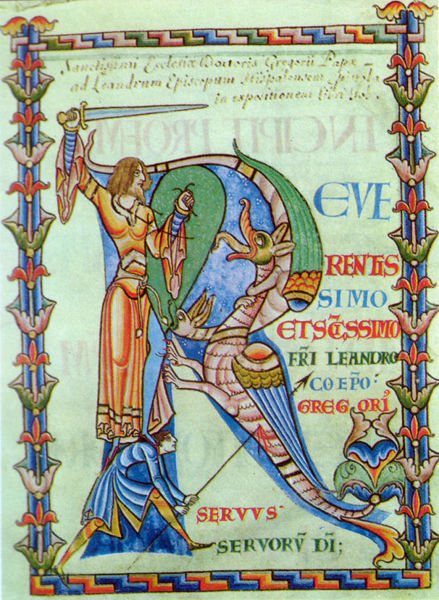 Sanctissimi Ecclesiæ Doctoris Gregorii Papæ
ad Leandrum Episcopum Hispalensem
in expositionem libri Iob.
REVE
RENTIS
SIMO
ET SC̄ISSIMO
FR̄I LEANDRO
COEP̄O:
GREGORI᾽
SERVVS
SERVORV̄ D̄I;